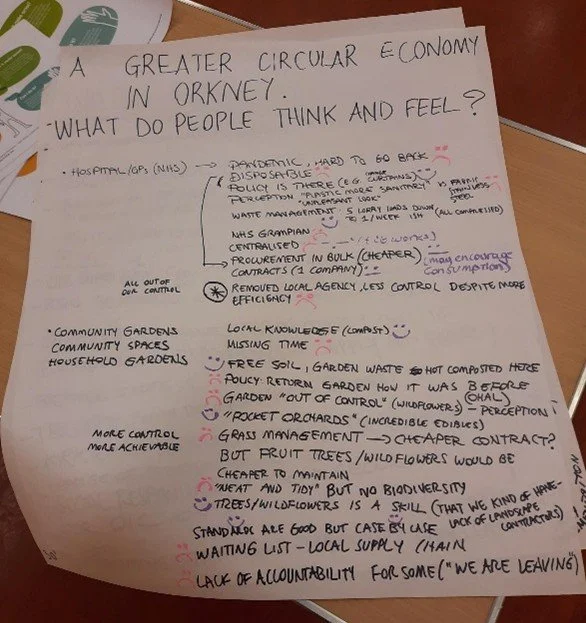 A GREATER CIRCULAR ECONOMY
IN ORKNEY.
WHAT DO PEOPLE THINK AND FEEL?
• HOSPITAL/GPs (NHS) → PANDEMIC, HARD TO GO BACK
DISPOSABLE
POLICY IS THERE (E.G. CURTAINS)
PERCEPTION "PLASTIC MORE SANITARY" VS FABRIC
"UNPLEASANT LOOK" STAINLESS
STEEL
WASTE MANAGEMENT 5 LORRY LOADS DOWN
TO 1/WEEK ISH (ALL COMPRESSED)
NHS GRAMPIAN
CENTRALISED works)
PROCUREMENT IN BULK (CHEAPER) (may encourage
CONTRACTS (1 COMPANY) consumption)
ALL OUT OF
OUR CONTROL
REMOVED LOCAL AGENCY, LESS CONTROL DESPITE MORE
EFFICIENCY
• COMMUNITY GARDENS
COMMUNITY SPACES
HOUSEHOLD GARDENS
LOCAL KNOWLEDGE (COMPOST)
MISSING TIME
FREE SOIL, GARDEN WASTE NOT COMPOSTED HERE
POLICY: RETURN GARDEN HOW IT WAS BEFORE
(OHAL)
GARDEN "OUT OF CONTROL" (WILDFLOWERS) – PERCEPTION
"POCKET ORCHARDS" (INCREDIBLE EDIBLES)
MORE CONTROL
MORE ACHIEVABLE
GRASS MANAGEMENT → CHEAPER CONTRACT?
BUT FRUIT TREES/WILDFLOWERS WOULD BE
CHEAPER TO MAINTAIN
"NEAT AND TIDY" BUT NO BIODIVERSITY
TREES/WILDFLOWERS IS A SKILL (THAT WE KIND OF HAVE –
LACK OF LANDSCAPE
CONTRACTORS)
STANDARDS ARE GOOD BUT CASE BY CASE
WAITING LIST – LOCAL SUPPLY CHAIN
LACK OF ACCOUNTABILITY FOR SOME ("WE ARE LEAVING")